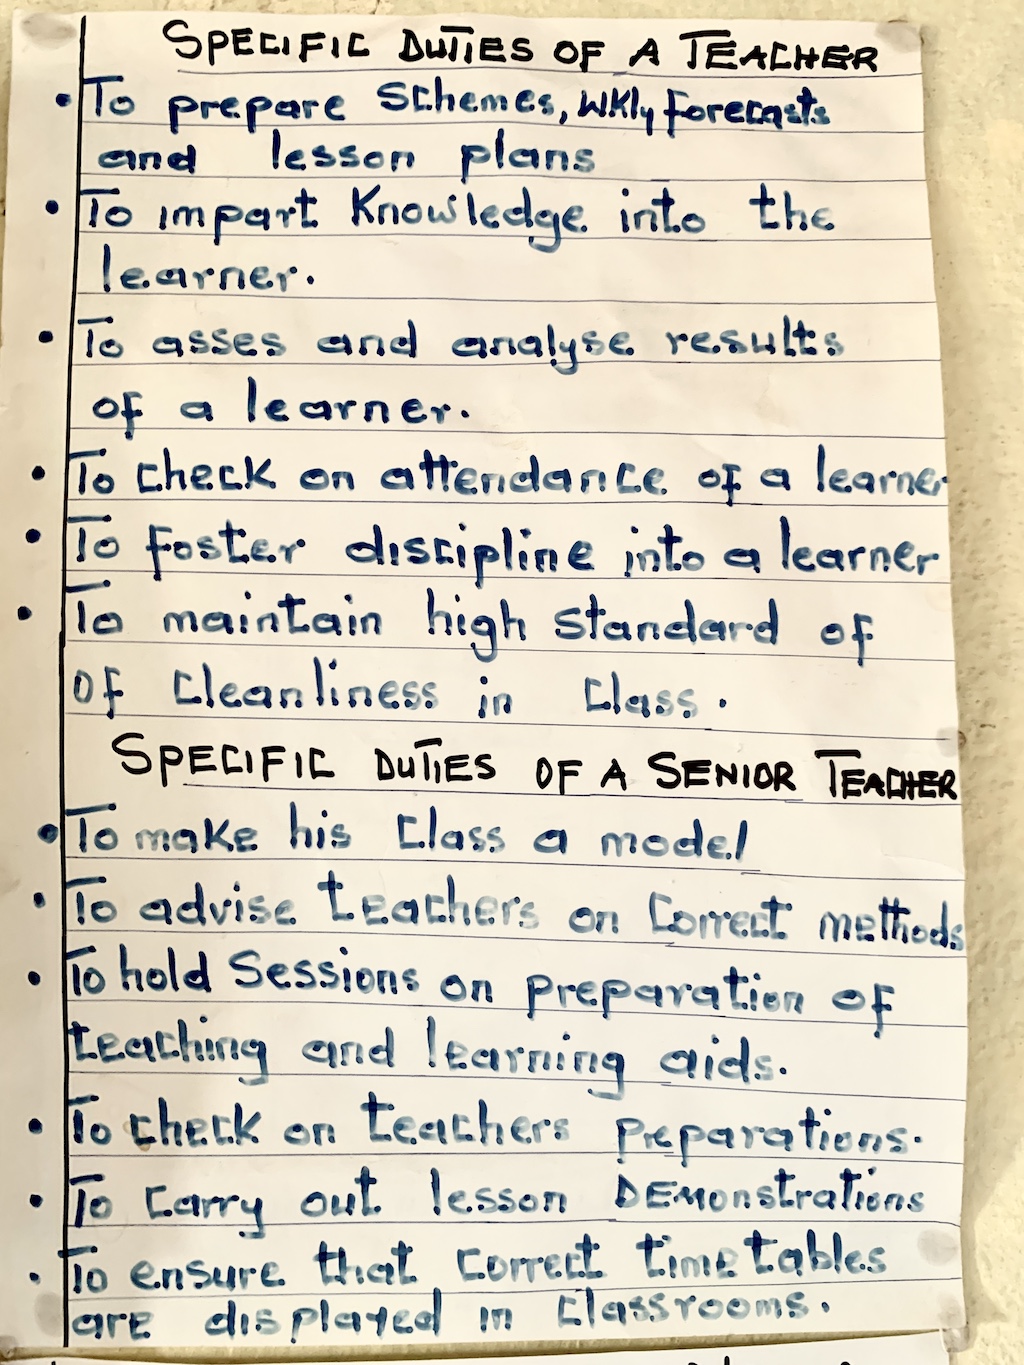 SPECIFIC DUTIES OF A TEACHER
• To prepare Schemes, Wkly forecasts
and lesson plans
• To impart Knowledge into the
learner.
• To asses and analyse results
of a learner.
• To check on attendance of a learner
• To foster discipline into a learner
• To maintain high standard of
of cleanliness in class.
SPECIFIC DUTIES OF A SENIOR TEACHER
• To make his class a model
• To advise teachers on correct methods
• To hold Sessions on preparation of
teaching and learning aids.
• To check on teachers preparations.
• To carry out lesson DEMonstrations
• To ensure that correct time tables
are displayed in classrooms.